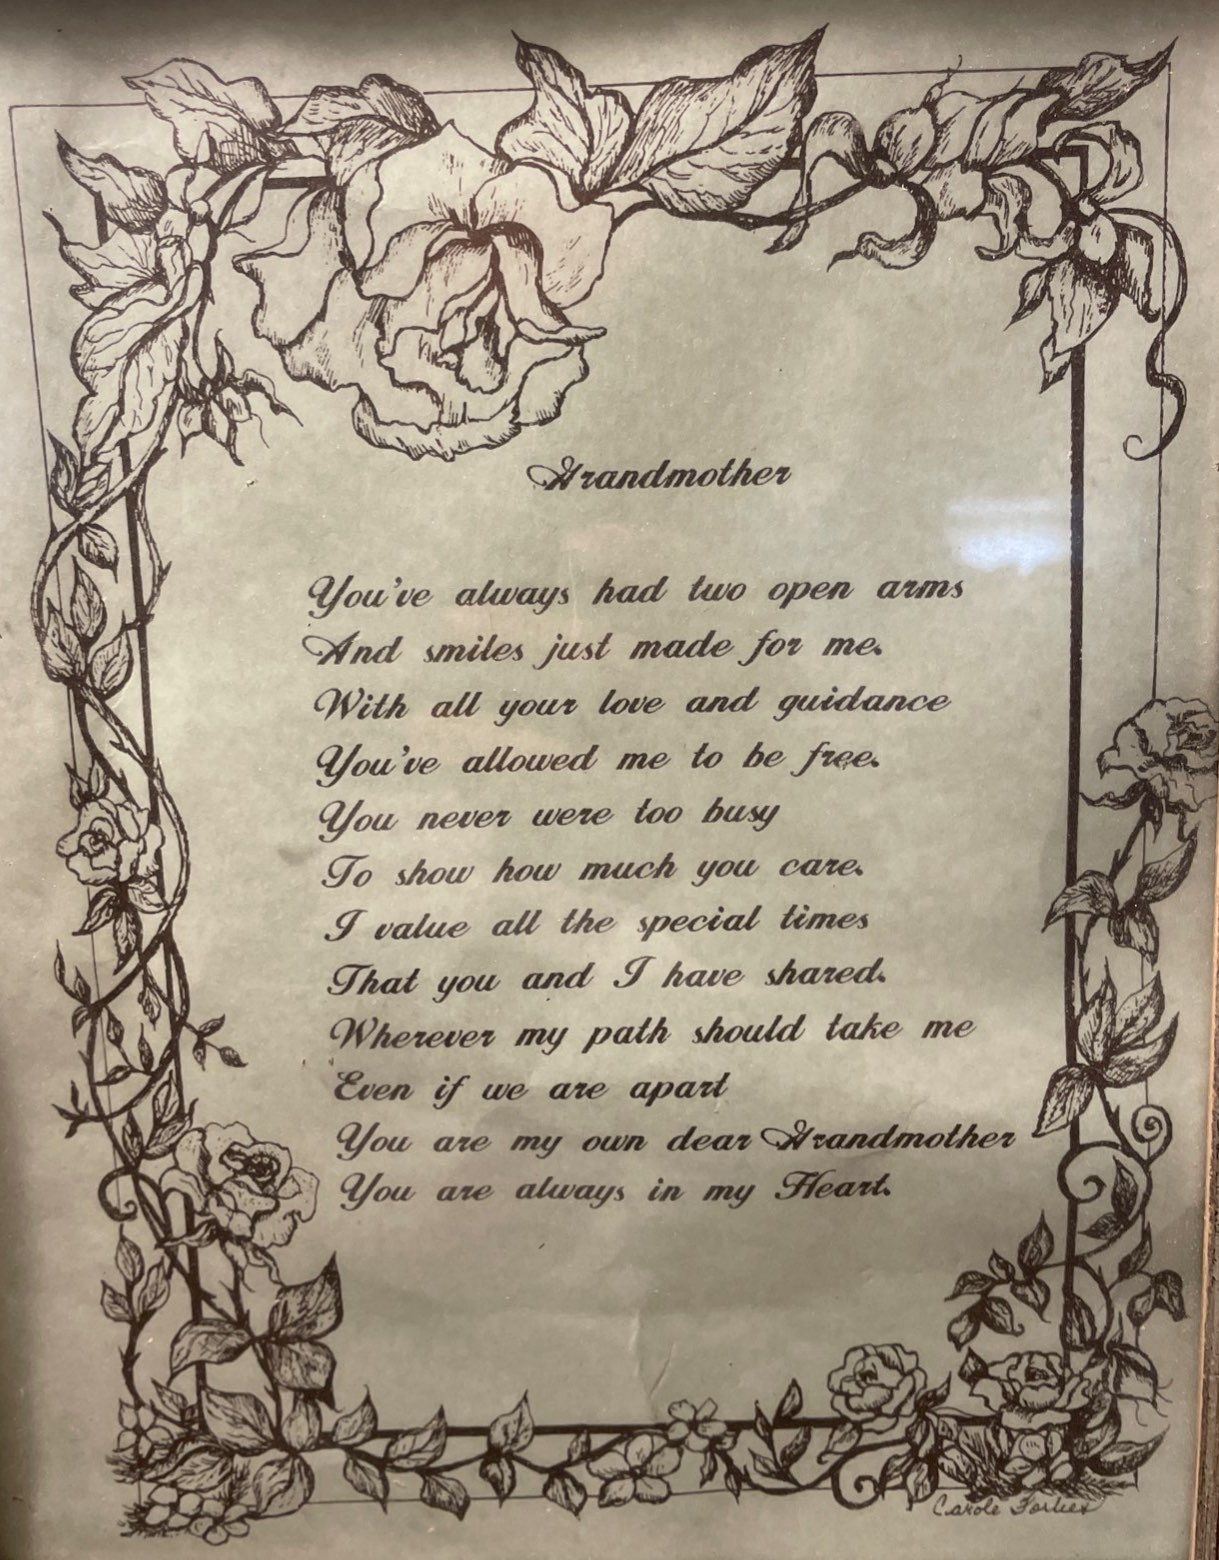 Grandmother
You've always had two open arms
And smiles just made for me.
With all your love and guidance
You've allowed me to be free.
You never were too busy
To show how much you care.
I value all the special times
That you and I have shared.
Wherever my path should take me
Even if we are apart
You are my own dear Grandmother
You are always in my Heart.
Carole